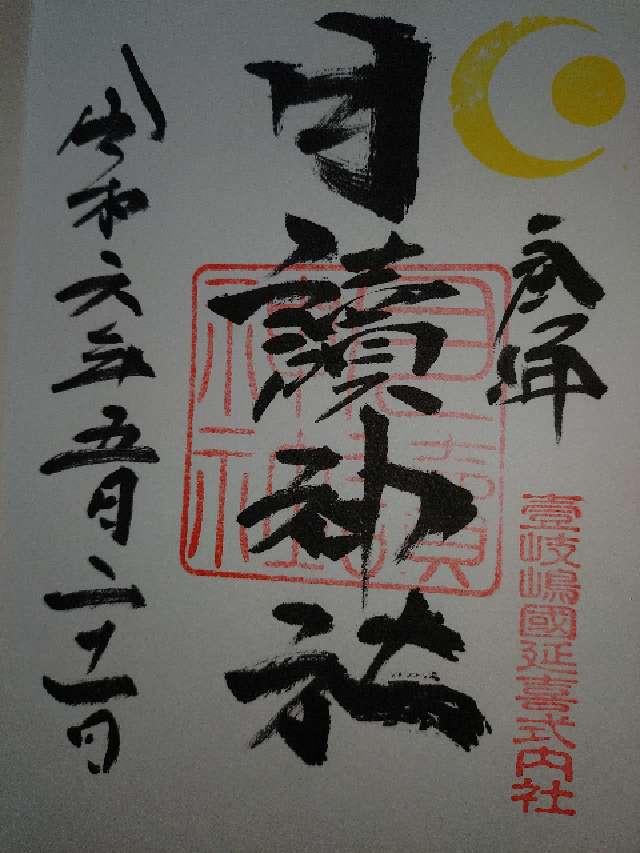 奉拝
壹岐嶋國延喜式内社
月讀神社
月讀
神社
令和六年五月二十一日